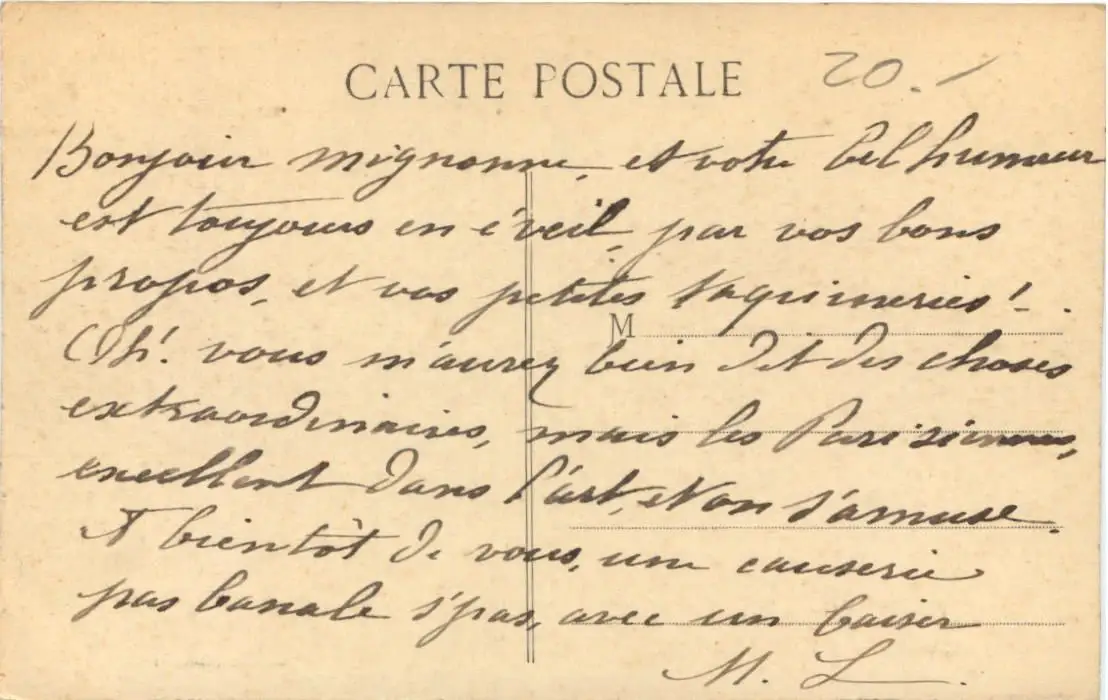 CARTE POSTALE 20.-
Bonjour mignonne, et votre bel humeur
est toujours en éveil, par vos bons
propos, et vos petites taquineries!-.
M
Oh! vous m'aurez bien dit des choses
extraordinaires, mais les Parisiennes,
excellent dans l'art, et on s'amuse.
A bientôt de vous, une causerie
pas banale s'pas, avec un baiser
M. L.